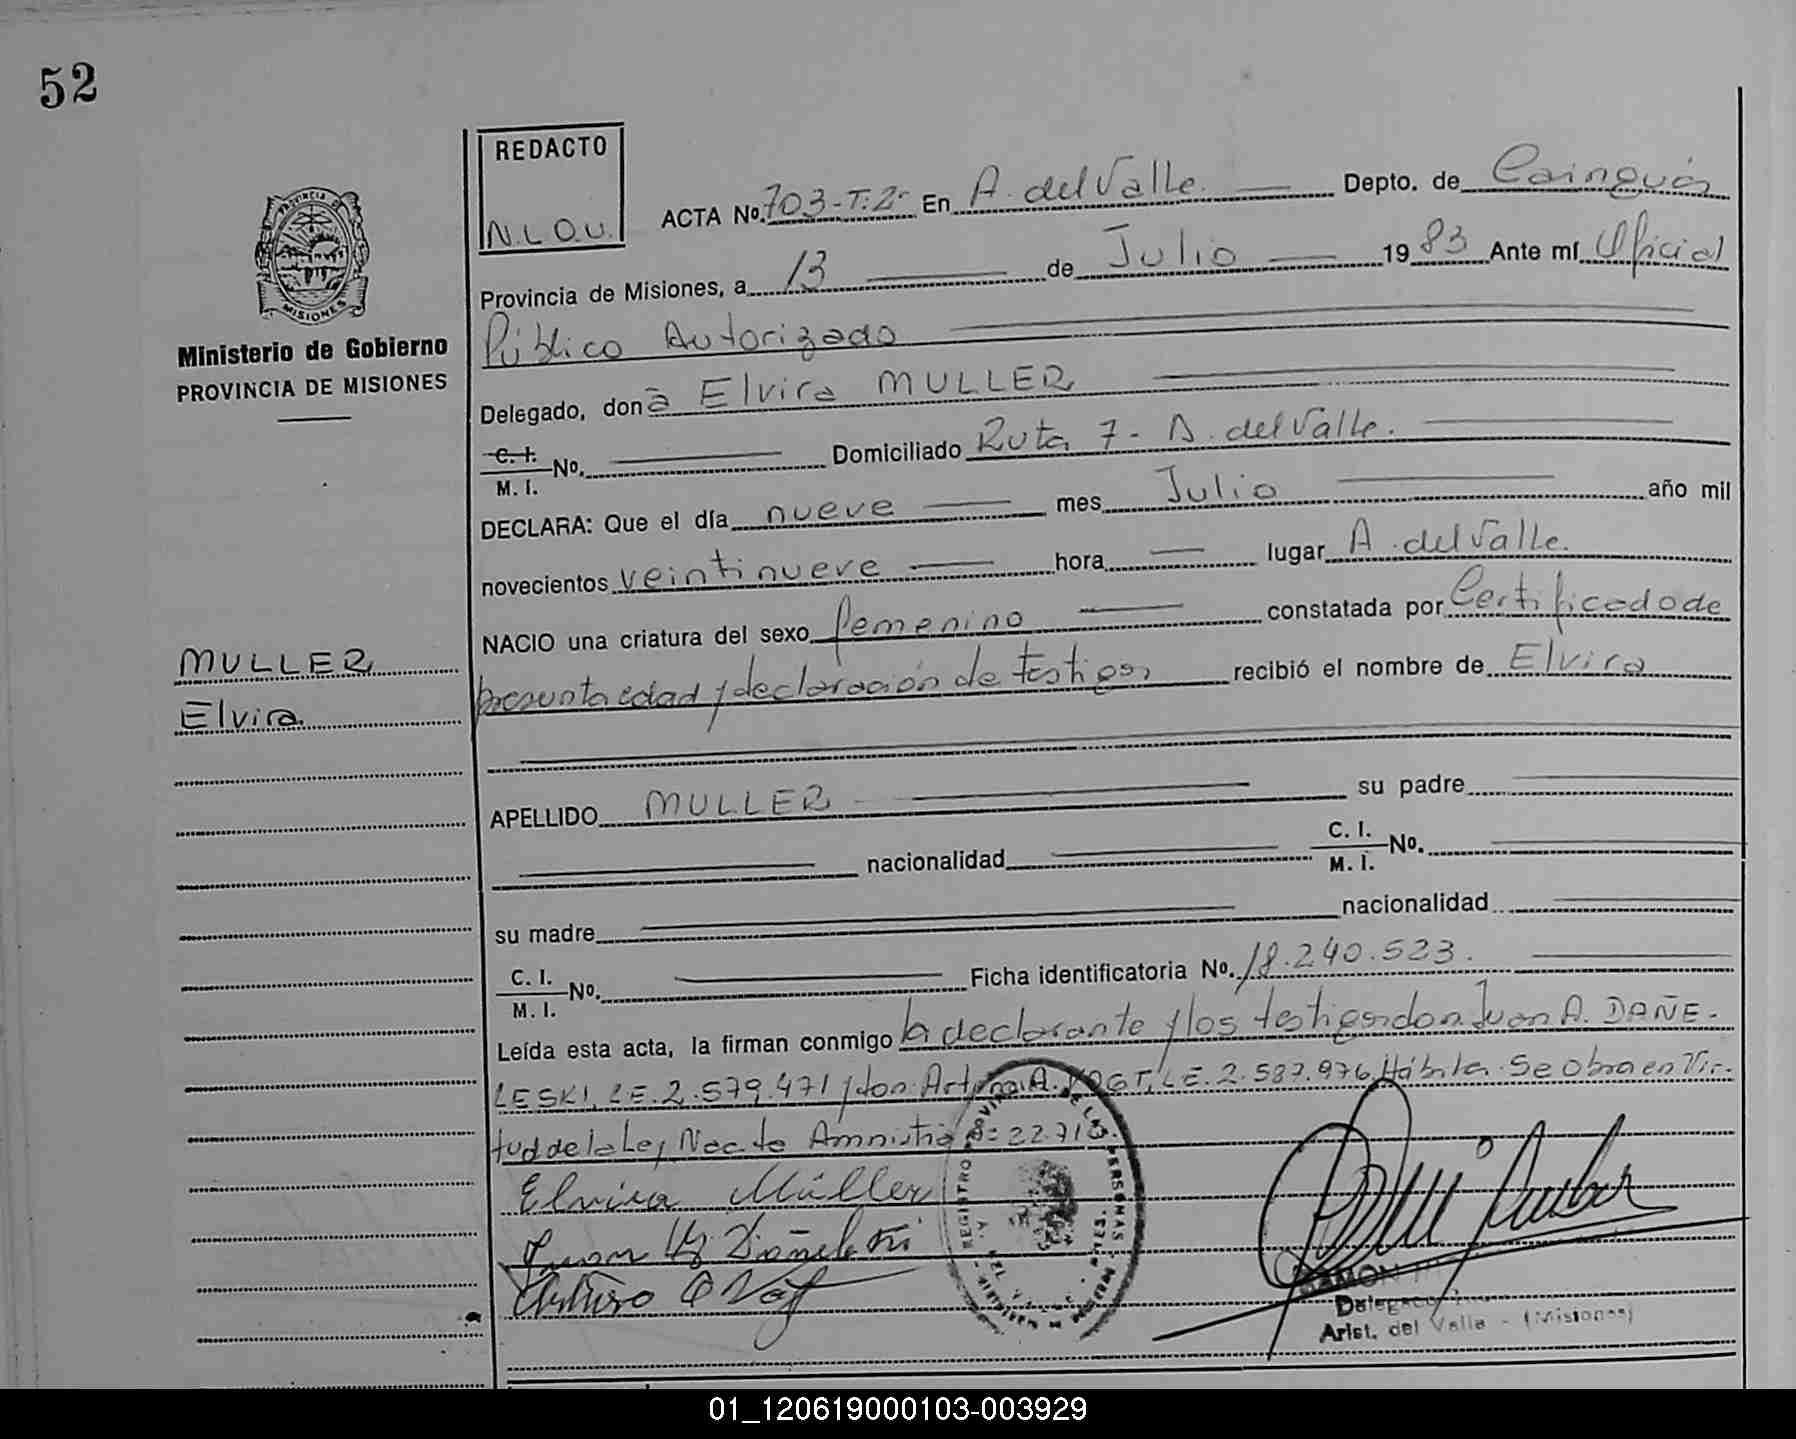 52
REDACTO
N.L.O.U.
PROVINCIA DE
MISIONES
Ministerio de Gobierno
PROVINCIA DE MISIONES
ACTA No. 703-T:2º En A. del Valle. Depto. de Cainguás
Provincia de Misiones, a 13 de Julio 1983 Ante mí Oficial
Público Autorizado
Delegado, donã Elvira MULLER
C. I. M. I. No. Domiciliado Ruta 7 - A. del Valle.
DECLARA: Que el día nueve mes Julio año mil
novecientos veintinueve hora lugar A. del Valle.
NACIO una criatura del sexo femenino constatada por Certificado de
presunta edad y declaración de testigos recibió el nombre de Elvira
MULLER
Elvira
APELLIDO MULLER su padre
nacionalidad C. I. M. I. No.
su madre nacionalidad
C. I. M. I. No. Ficha identificatoria No. 18.240.523.
Leída esta acta, la firman conmigo la declarante y los testigos don Juan A. DAÑE-
LESKI, L.E. 2.579.471 y don Arturo A. VOGT, L.E. 2.587.976 Hábiles. Se obra en Vir-
tud de la Ley Nac. de Amnistia
Elvira Müller
Juan
Arturo
REGISTRO PROVINCIAL DE LAS PERSONAS
RAMON
Delegado
Arist. del Valle - (Misiones)
01_120619000103-003929